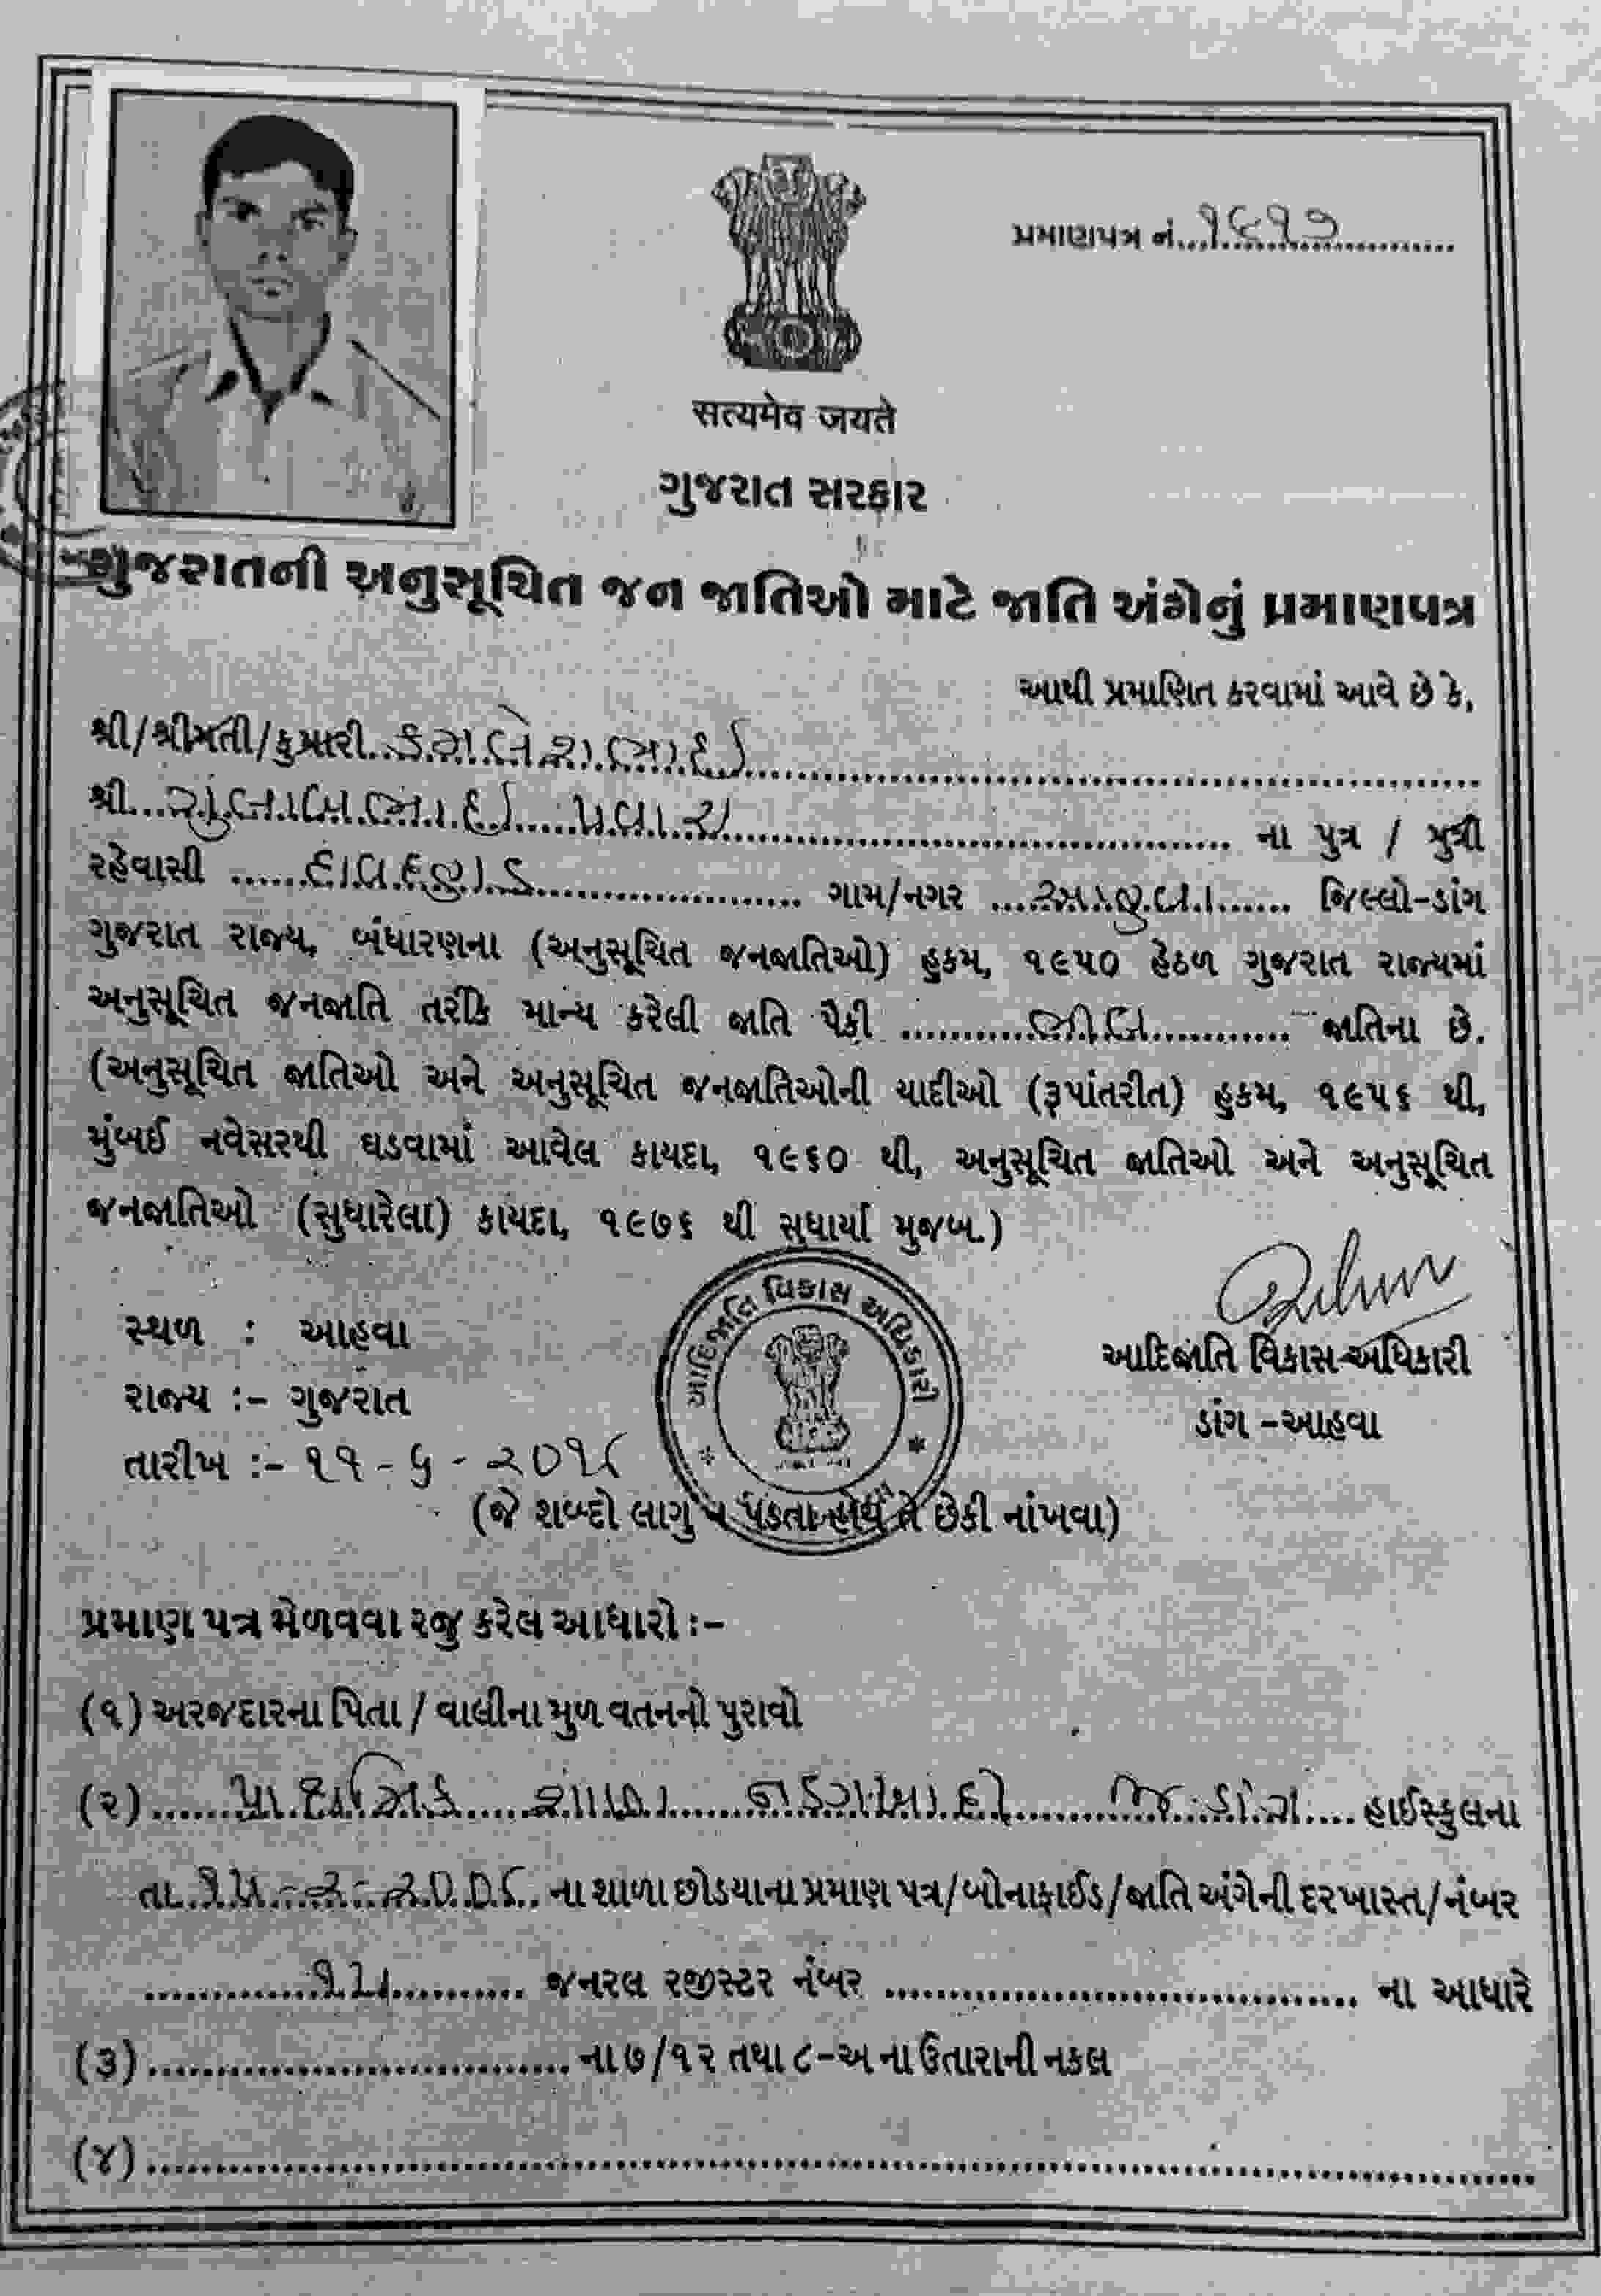 પ્રમાણપત્ર નં. ૧૯૧૭
સત્યમેવ જયતે
ગુજરાત સરકાર
ગુજરાતની અનુસૂચિત જન જાતિઓ માટે જાતિ અંગેનું પ્રમાણપત્ર
આથી પ્રમાણિત કરવામાં આવે છે કે,
શ્રી/શ્રીમતી/કુમારી. કમલેશભાઈ
શ્રી... ગુલાબભાઈ પવાર ના પુત્ર / પુત્રી
રહેવાસી ગામ/નગર આહવા જિલ્લો-ડાંગ
ગુજરાત રાજ્ય, બંધારણના (અનુસૂચિત જનજાતિઓ) હુકમ, ૧૯૫૦ હેઠળ ગુજરાત રાજ્યમાં
અનુસૂચિત જનજાતિ તરીકે માન્ય કરેલી જાતિ પૈકી ભીલ જાતિના છે.
(અનુસૂચિત જાતિઓ અને અનુસૂચિત જનજાતિઓની યાદીઓ (રૂપાંતરીત) હુકમ, ૧૯૫૬ થી,
મુંબઈ નવેસરથી ઘડવામાં આવેલ કાયદા, ૧૯૬૦ થી, અનુસૂચિત જાતિઓ અને અનુસૂચિત
જનજાતિઓ (સુધારેલા) કાયદા, ૧૯૭૬ થી સુધાર્યા મુજબ.)
આદિજાતિ વિકાસ અધિકારી
સ્થળ : આહવા
રાજ્ય :- ગુજરાત
તારીખ :-
આદિજાતિ વિકાસ અધિકારી
ડાંગ -આહવા
(જે શબ્દો લાગુ ન પડતા હોય તે છેકી નાંખવા)
પ્રમાણ પત્ર મેળવવા રજુ કરેલ આધારો :-
(૧) અરજદારના પિતા / વાલીના મુળ વતનનો પુરાવો
(૨) પ્રાથમિક શાળા જિ. ડાંગ હાઈસ્કુલના
તા. ના શાળા છોડયાના પ્રમાણ પત્ર/બોનાફાઈડ/જાતિ અંગેની દરખાસ્ત/નંબર
જનરલ રજીસ્ટર નંબર ના આધારે
(૩) ના ૭/૧૨ તથા ૮-અ ના ઉતારાની નકલ
(૪)